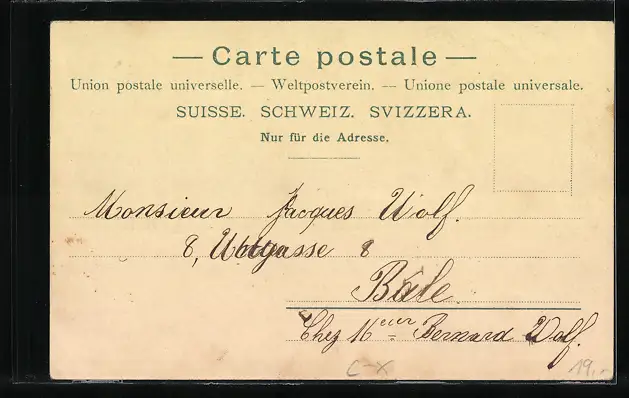 — Carte postale —
Union postale universelle. — Weltpostverein. — Unione postale universale.
SUISSE. SCHWEIZ. SVIZZERA.
Nur für die Adresse.
Monsieur Jacques Wolf.
8, 8
Bâle.
Chez Meur Bernard Wolf.
C-X 19,-